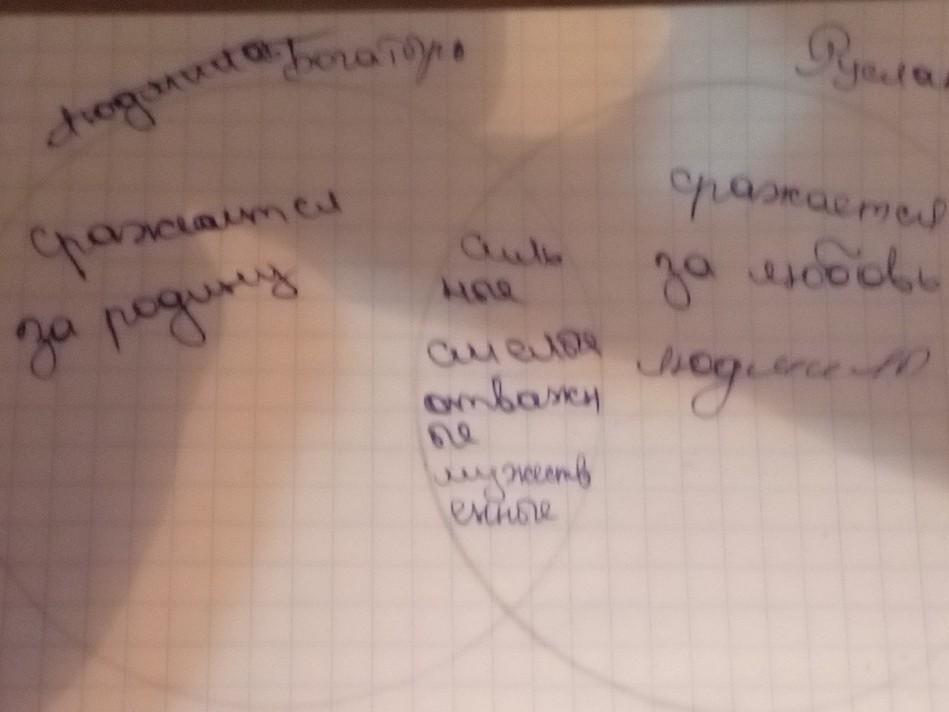 Людмила Богатырь
Русла
сражается
за родину
силь
ные
смелые
отважн
ые
мужеств
енные
сражается
за любовь